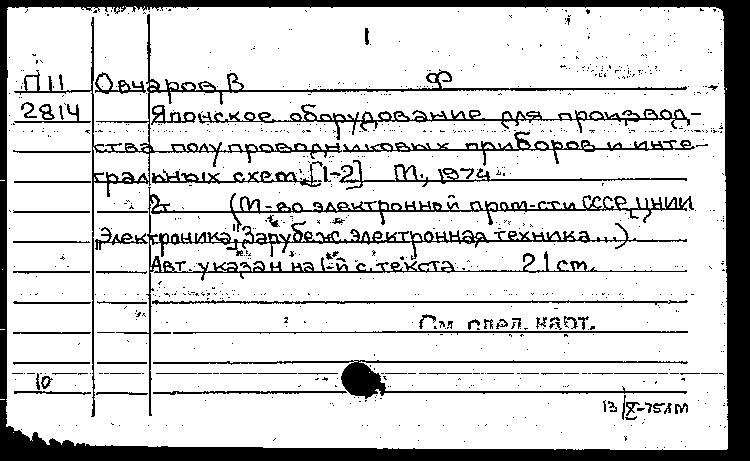 1
П11 Овчаров, В Ф
2814 Японское оборудование для производ-
ства полупроводниковых приборов и инте-
гральных схем. [1-2] М., 1974.
2т. (М-во электронной пром-сти СССР, ЦНИИ
„Электроника". Зарубеж. электронная техника...)
Авт. указан на 1-й с. текста. 21 cm.
См. след. карт.
10
13/X-75